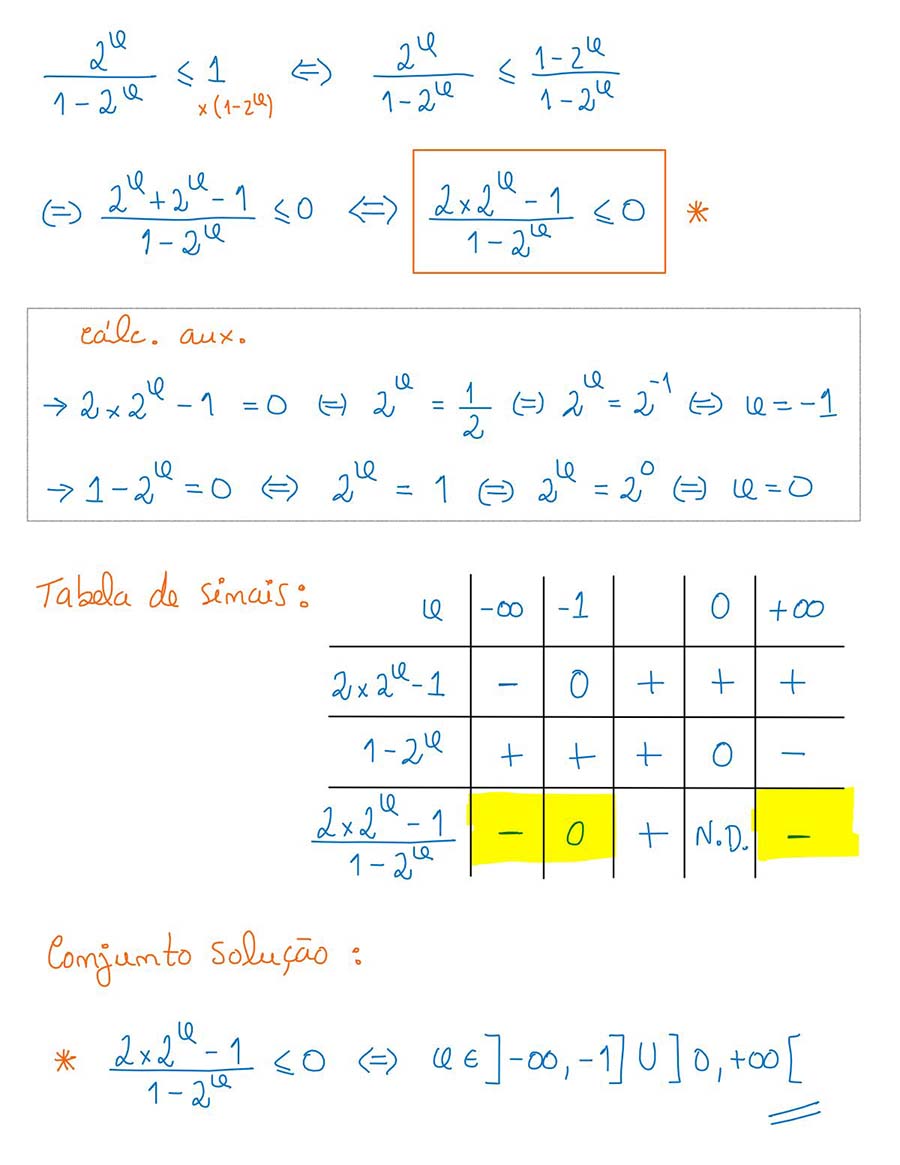 2^x / (1 - 2^x) ≤ 1 ×(1-2^x) ⇔ 2^x / (1 - 2^x) ≤ (1 - 2^x) / (1 - 2^x)
⇔ (2^x + 2^x - 1) / (1 - 2^x) ≤ 0 ⇔ (2 × 2^x - 1) / (1 - 2^x) ≤ 0 *
cálc. aux.
→ 2 × 2^x - 1 = 0 ⇔ 2^x = 1/2 ⇔ 2^x = 2^-1 ⇔ x = -1
→ 1 - 2^x = 0 ⇔ 2^x = 1 ⇔ 2^x = 2^0 ⇔ x = 0
Tabela de sinais:
x -∞ -1 0 +∞
2 × 2^x - 1 - 0 + + +
1 - 2^x + + + 0 -
(2 × 2^x - 1) / (1 - 2^x) - 0 + N.D. -
Conjunto solução :
* (2 × 2^x - 1) / (1 - 2^x) ≤ 0 ⇔ x ∈ ]-∞, -1] U ]0, +∞[